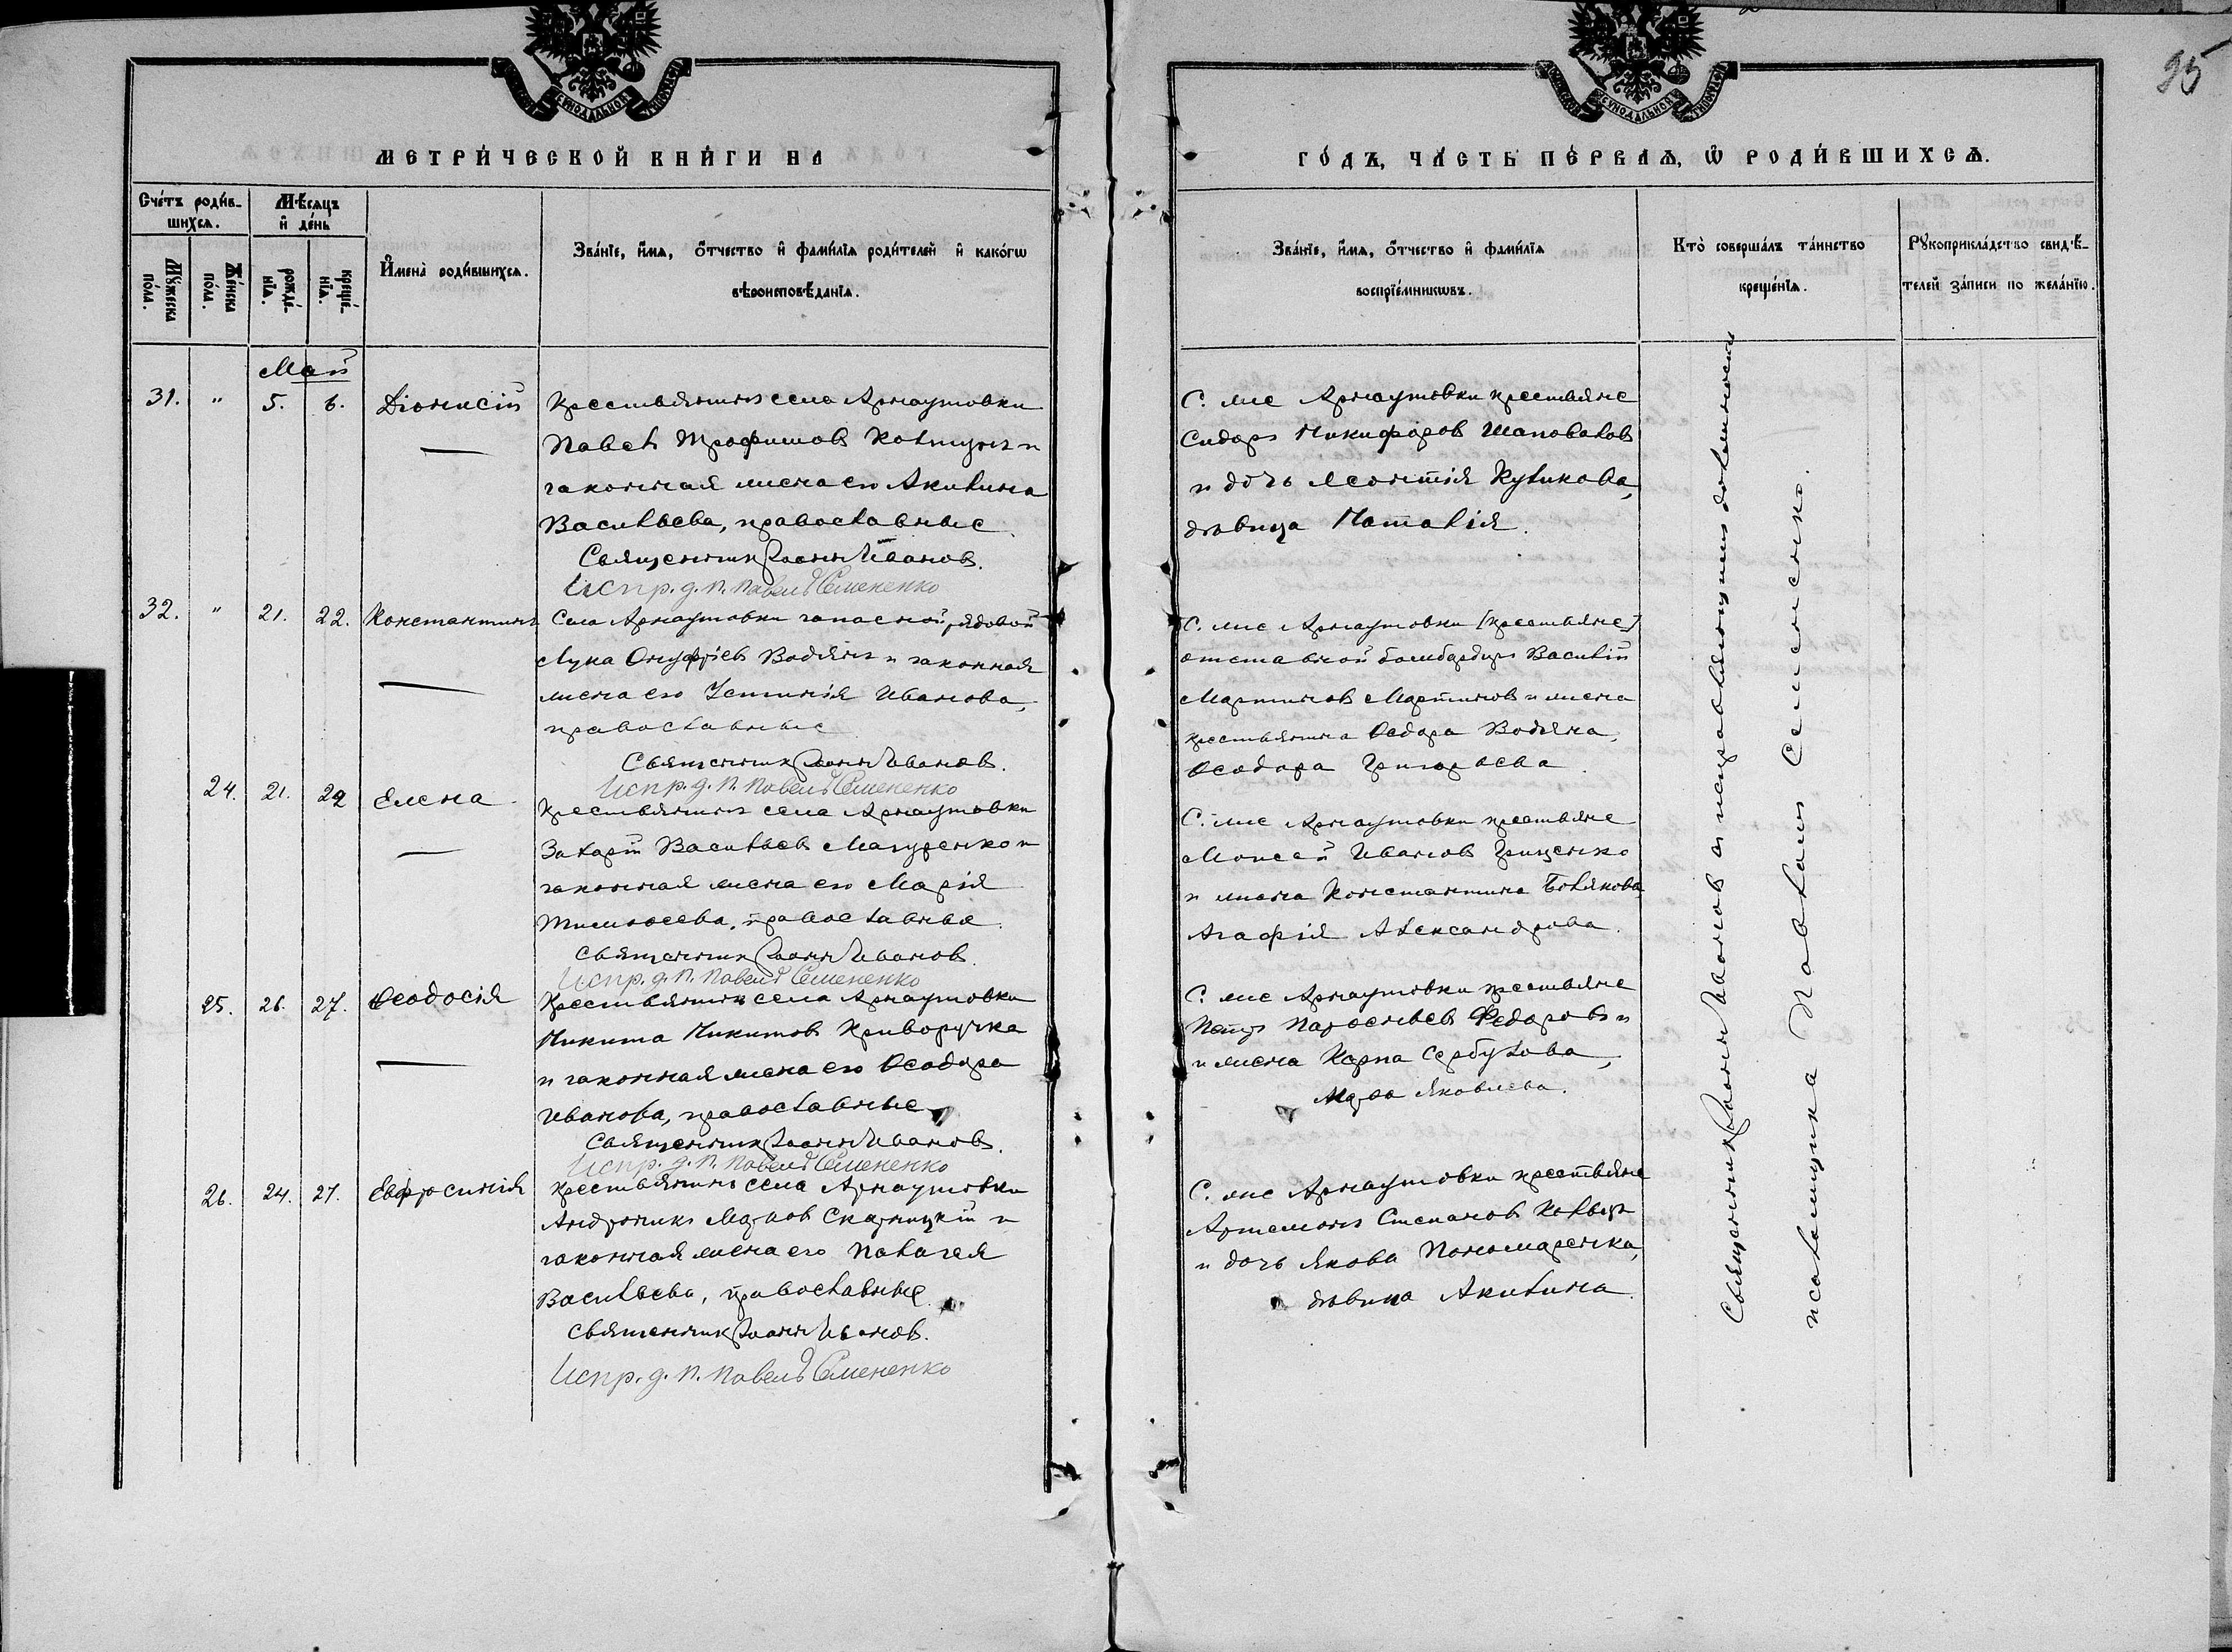 95
МЕТРИ́ЧЕСКОЙ КНИ́ГИ НА
ГО́ДЪ, ЧА́СТЬ ПЕ́РВАѦ, Ѡ҆ РОДИ́ВШИХСѦ.
Сче́тъ роди́в-
шихсѧ.
Мѣ́сѧцъ
и҆ де́нь
Мꙋ́жеска
по́ла.
Же́нска
по́ла.
рожде́-
нїѧ.
креще́-
нїѧ.
И҆мена̀ роди́вшихсѧ.
Зва́нїе, и҆́мѧ, ѻ҆́тчество и҆ фами́лїѧ роди́телей и҆ како́гѡ
вѣроисповѣ́данїѧ.
Зва́нїе, и҆́мѧ, ѻ҆́тчество и҆ фами́лїѧ
воспрїе́мникѡвъ.
Кто̀ соверша́лъ та́инство
креще́нїѧ.
Рꙋкоприкла́дство свидѣ́-
телей за́писи по жела́нїю.
Май
31. " 5. 6. Діонисій
Крестьянинъ села Арнаутовки
Павелъ Трофимовъ Колтунъ и
законная жена его Акилина
Васильева, православные
Священникъ Іоаннъ Ивановъ.
Испр. д. п. Павелъ Семененко
С. же Арнаутовки крестьяне
Сидоръ Никифоровъ Шаповаловъ
и дочь Леонтія Куликова,
дѣвица Наталія.
32. " 21. 22. Константинъ
Села Арнаутовки запасной рядовой
Лука Онуфріевъ Водянъ и законная
жена его Устинія Иванова,
православные
Священникъ Іоаннъ Ивановъ.
Испр. д. п. Павелъ Семененко
С. же Арнаутовки [крестьяне]
отставной бомбардиръ Василій
Мартиновъ Мартиновъ и жена
крестьянина Ѳедора Водяна,
Ѳеодора Григорьева.
24. 21. 22 Елена
Крестьянинъ села Арнаутовки
Захарій Васильевъ Мазуренко и
законная жена его Марія
Тимоѳеева, православные.
Священникъ Іоаннъ Ивановъ.
Испр. д. п. Павелъ Семененко
С. же Арнаутовки крестьяне
Моисей Ивановъ Грищенко
и жена Константина Бѣлякова,
Агафія Александрова.
25. 26. 27. Ѳеодосія
Крестьянинъ села Арнаутовки
Никита Никитовъ Криворучка
и законная жена его Ѳеодора
Иванова, православные
Священникъ Іоаннъ Ивановъ.
Испр. д. п. Павелъ Семененко
С. же Арнаутовки крестьяне
Петръ Парѳеньевъ Федоровъ и
и жена Карпа Сербулова,
Марѳа Яковлева.
26. 24. 27. Евфросинія
Крестьянинъ села Арнаутовки
Андроникъ Марковъ Скарницкій и
законная жена его Палагея
Васильева, православные.
Священникъ Іоаннъ Ивановъ.
Испр. д. п. Павелъ Семененко
С. же Арнаутовки крестьяне
Артемонъ Степановъ
и дочь Якова Пономаренка,
дѣвица Акилина.
Священникъ Іоаннъ Ивановъ съ исправляющимъ должность
псаломщика Павломъ Семененко.